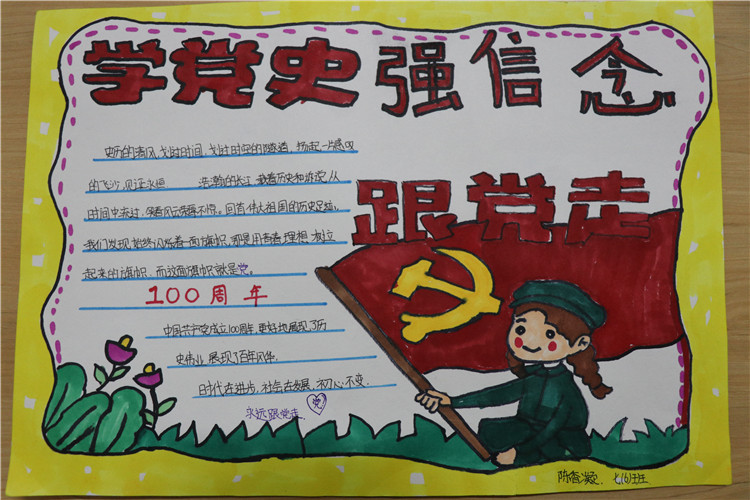 学党史强信念
跟党走
史历的清风,划时时间,划时时空的隧道,扬起一片感叹
的飞沙,见证永恒 浩瀚的长江,载着历史和欢笑,从
时间中走过,领着风云变幻不惊。回首,伟大祖国的历史足迹,
我们发现,始终飘扬着一面旗帜,那是用青春,理想,树立
起来的旗帜,而这面旗帜就是党。
100周年
中国共产党成立100周年,更好地展现了历
史伟业,展现了百年风华。
时代在进步,社会在发展,初心不变.
永远跟党走. 党
陈 凝. 七(6)班